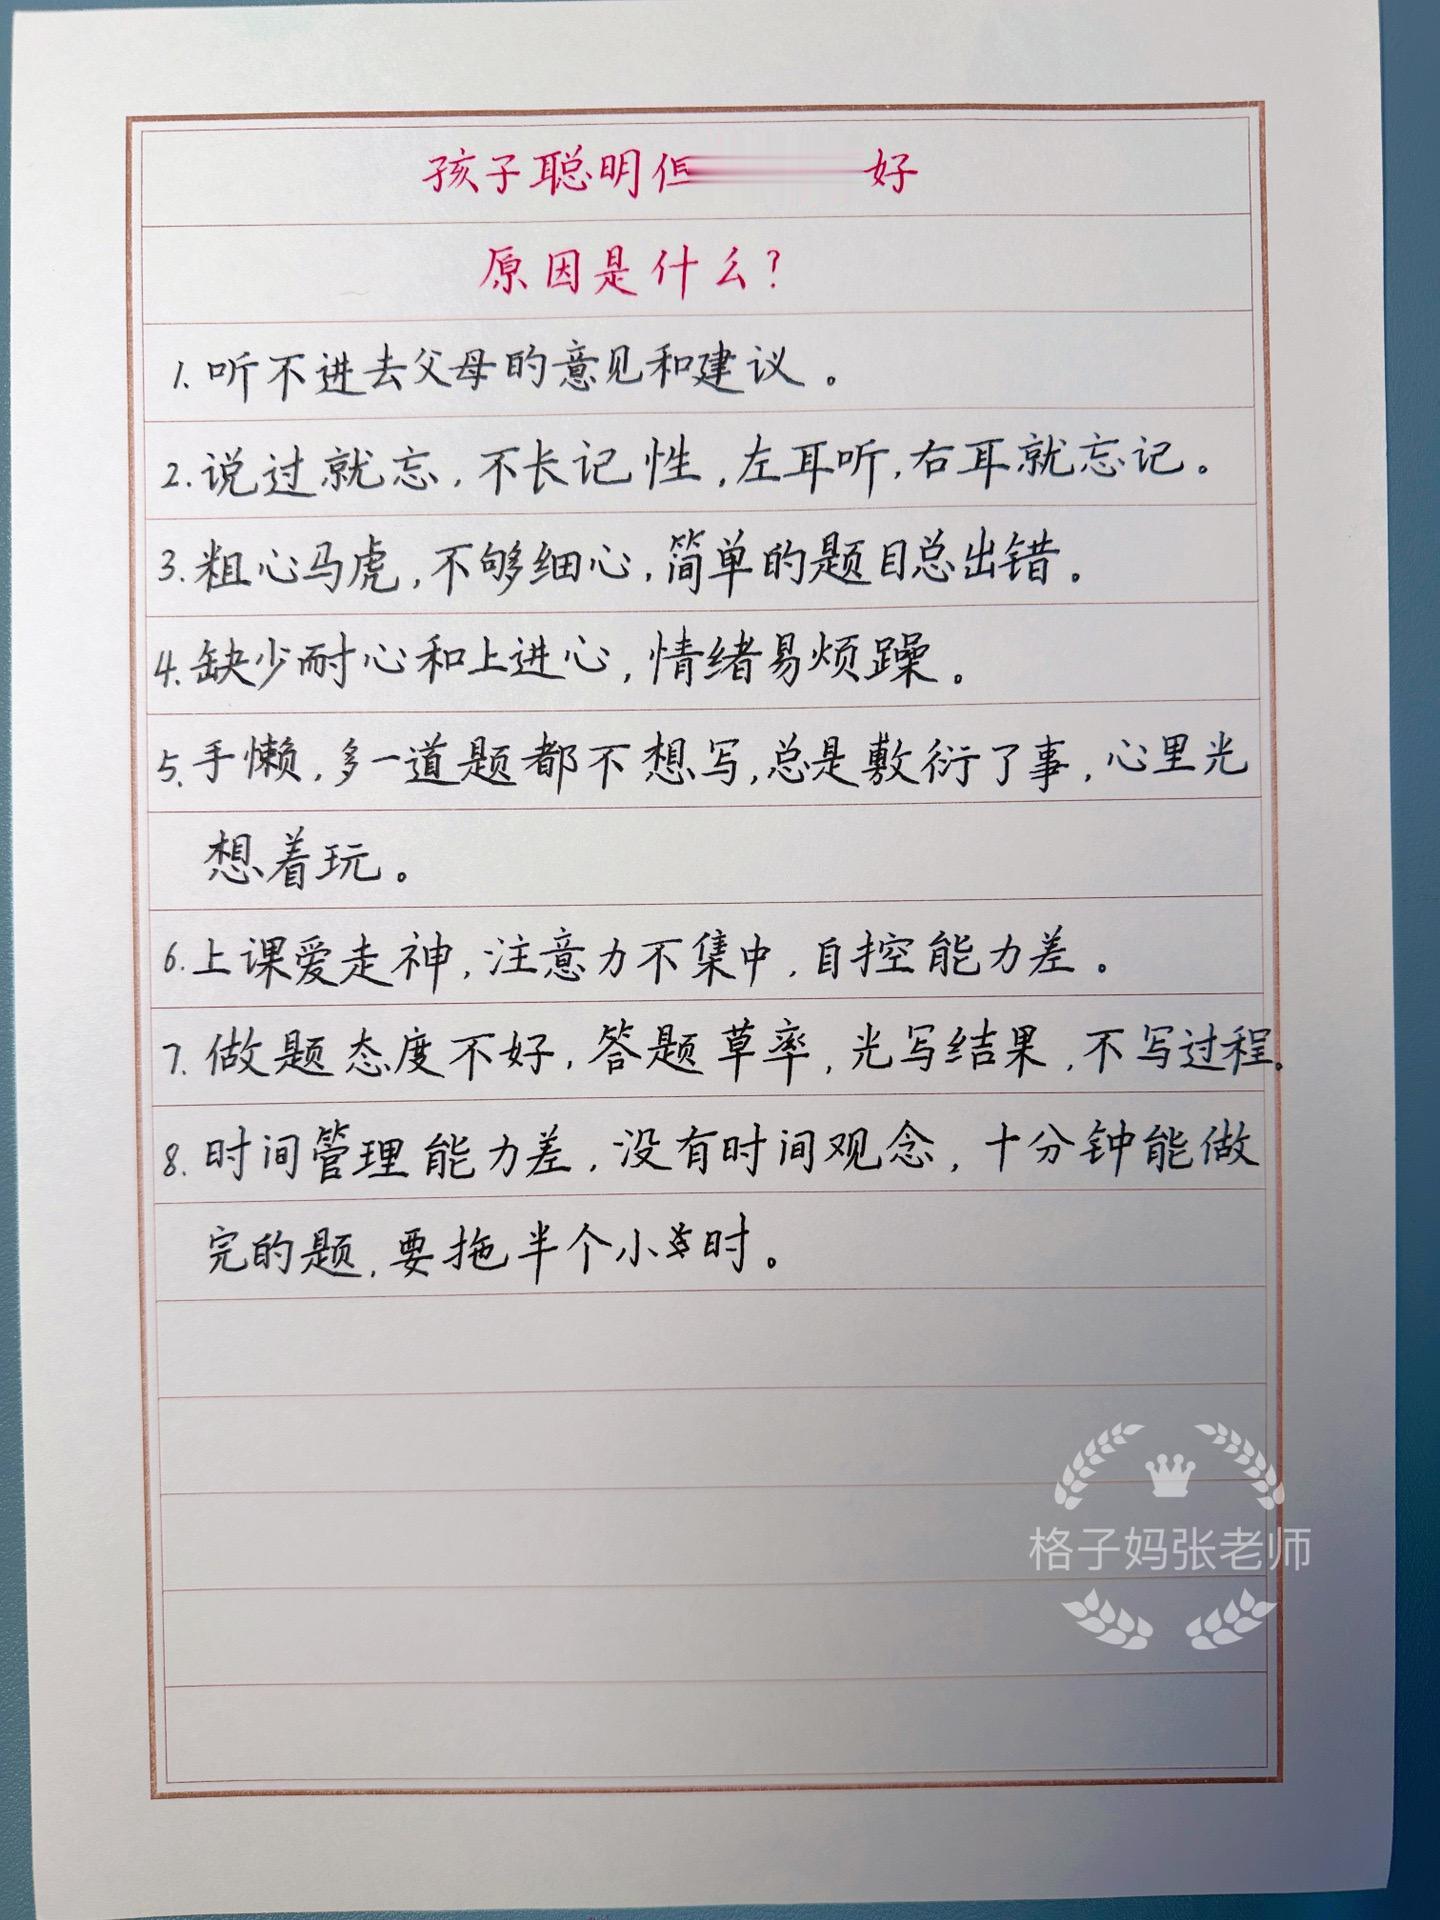 孩子聪明但 好
原因是什么?
1.听不进去父母的意见和建议。
2.说过就忘,不长记性,左耳听,右耳就忘记。
3.粗心马虎,不够细心,简单的题目总出错。
4.缺少耐心和上进心,情绪易烦躁。
5.手懒,多一道题都不想写,总是敷衍了事,心里光
想着玩。
6.上课爱走神,注意力不集中,自控能力差。
7.做题态度不好,答题草率,光写结果,不写过程。
8.时间管理能力差,没有时间观念,十分钟能做
完的题,要拖半个小时。
格子妈张老师